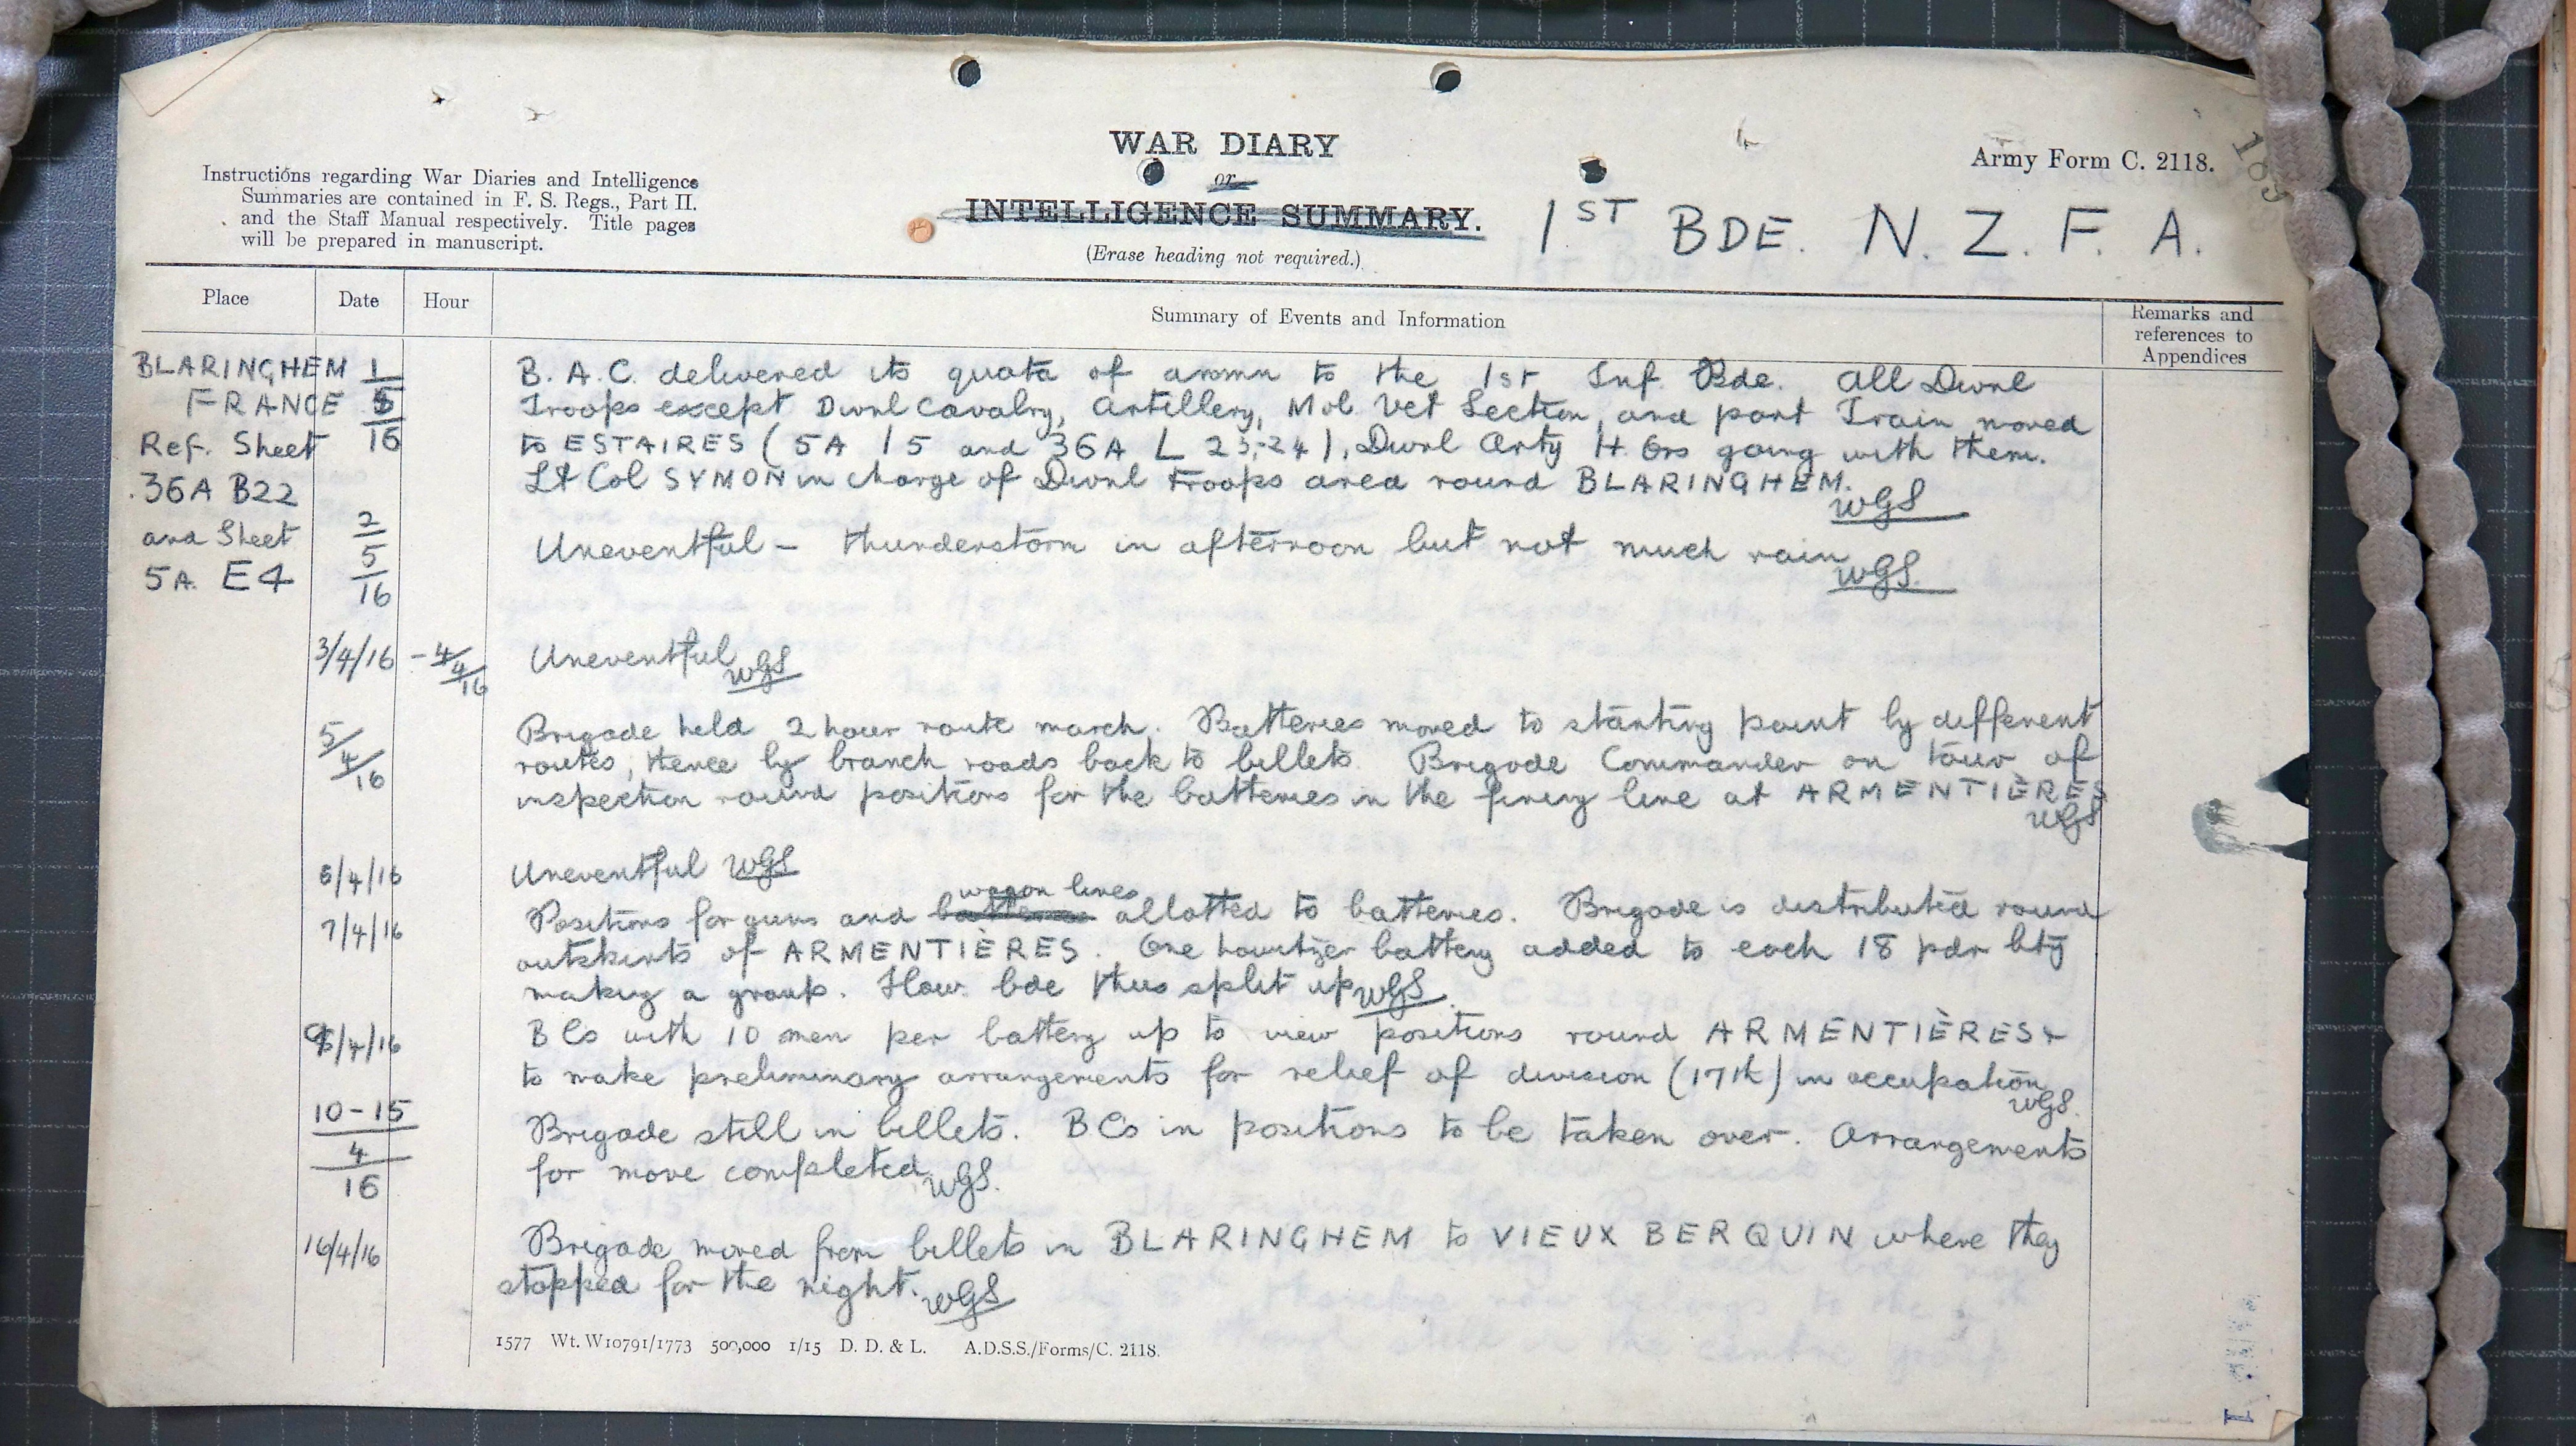 WAR DIARY
or
INTELLIGENCE SUMMARY.
(Erase heading not required.)
Instructions regarding War Diaries and Intelligence
Summaries are contained in F. S. Regs., Part II.
and the Staff Manual respectively. Title pages
will be prepared in manuscript.
Army Form C. 2118.
1ST BDE. N. Z. F. A.
Place Date Hour Summary of Events and Information
Remarks and
references to
Appendices
BLARINGHEM
FRANCE
Ref. Sheet
36A B22
and Sheet
5A. E4
1/5/16
B. A. C. delivered its quota of ammn to the 1st Inf. Bde. All Divnl
Troops except Divnl Cavalry, Artillery, Mob. Vet Section, and part Train moved
to ESTAIRES (5A I 5 and 36A L 23,-24), Divnl Arty H. Qrs going with them.
Lt Col SYMON in charge of Divnl Troops area round BLARINGHEM.
WGS
2/5/16
Uneventful - thunderstorm in afternoon but not much rain
WGS.
3/4/16 - 4/4/16 Uneventful WGS
5/4/16
Brigade held 2 hour route march. Batteries moved to starting point by different
routes, thence by branch roads back to billets. Brigade Commander on tour of
inspection round positions for the batteries in the firing line at ARMENTIÈRES
WGS
6/4/16 Uneventful WGS
wagon lines
7/4/16 Positions for guns and batteries allotted to batteries. Brigade is distributed round
outskirts of ARMENTIÈRES. One howitzer battery added to each 18 pdr bty
making a group. How. bde thus split up WGS.
9/4/16 B Cs with 10 men per battery up to view positions round ARMENTIÈRES +
to make preliminary arrangements for relief of division (17th) in occupation
WGS.
10-15/4/16
Brigade still in billets. B Cs in positions to be taken over. Arrangements
for move completed. WGS.
16/4/16 Brigade moved from billets in BLARINGHEM to VIEUX BERQUIN where they
stopped for the night. WGS
1577 Wt. W10791/1773 500,000 1/15 D. D. & L. A.D.S.S./Forms/C. 2118.